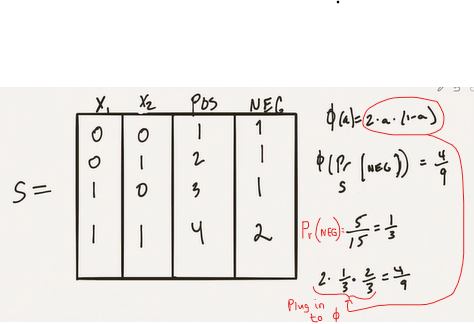 X₁ X₂ POS NEG
0 0 1 1
0 1 2 1
S = 1 0 3 1
1 1 4 2
ϕ(a) = 2·a·(1-a)
ϕ(Pr_S[NEG]) = 4/9
Pr(NEG) = 5/15 = 1/3
2 · 1/3 · 2/3 = 4/9
Plug in
to ϕ